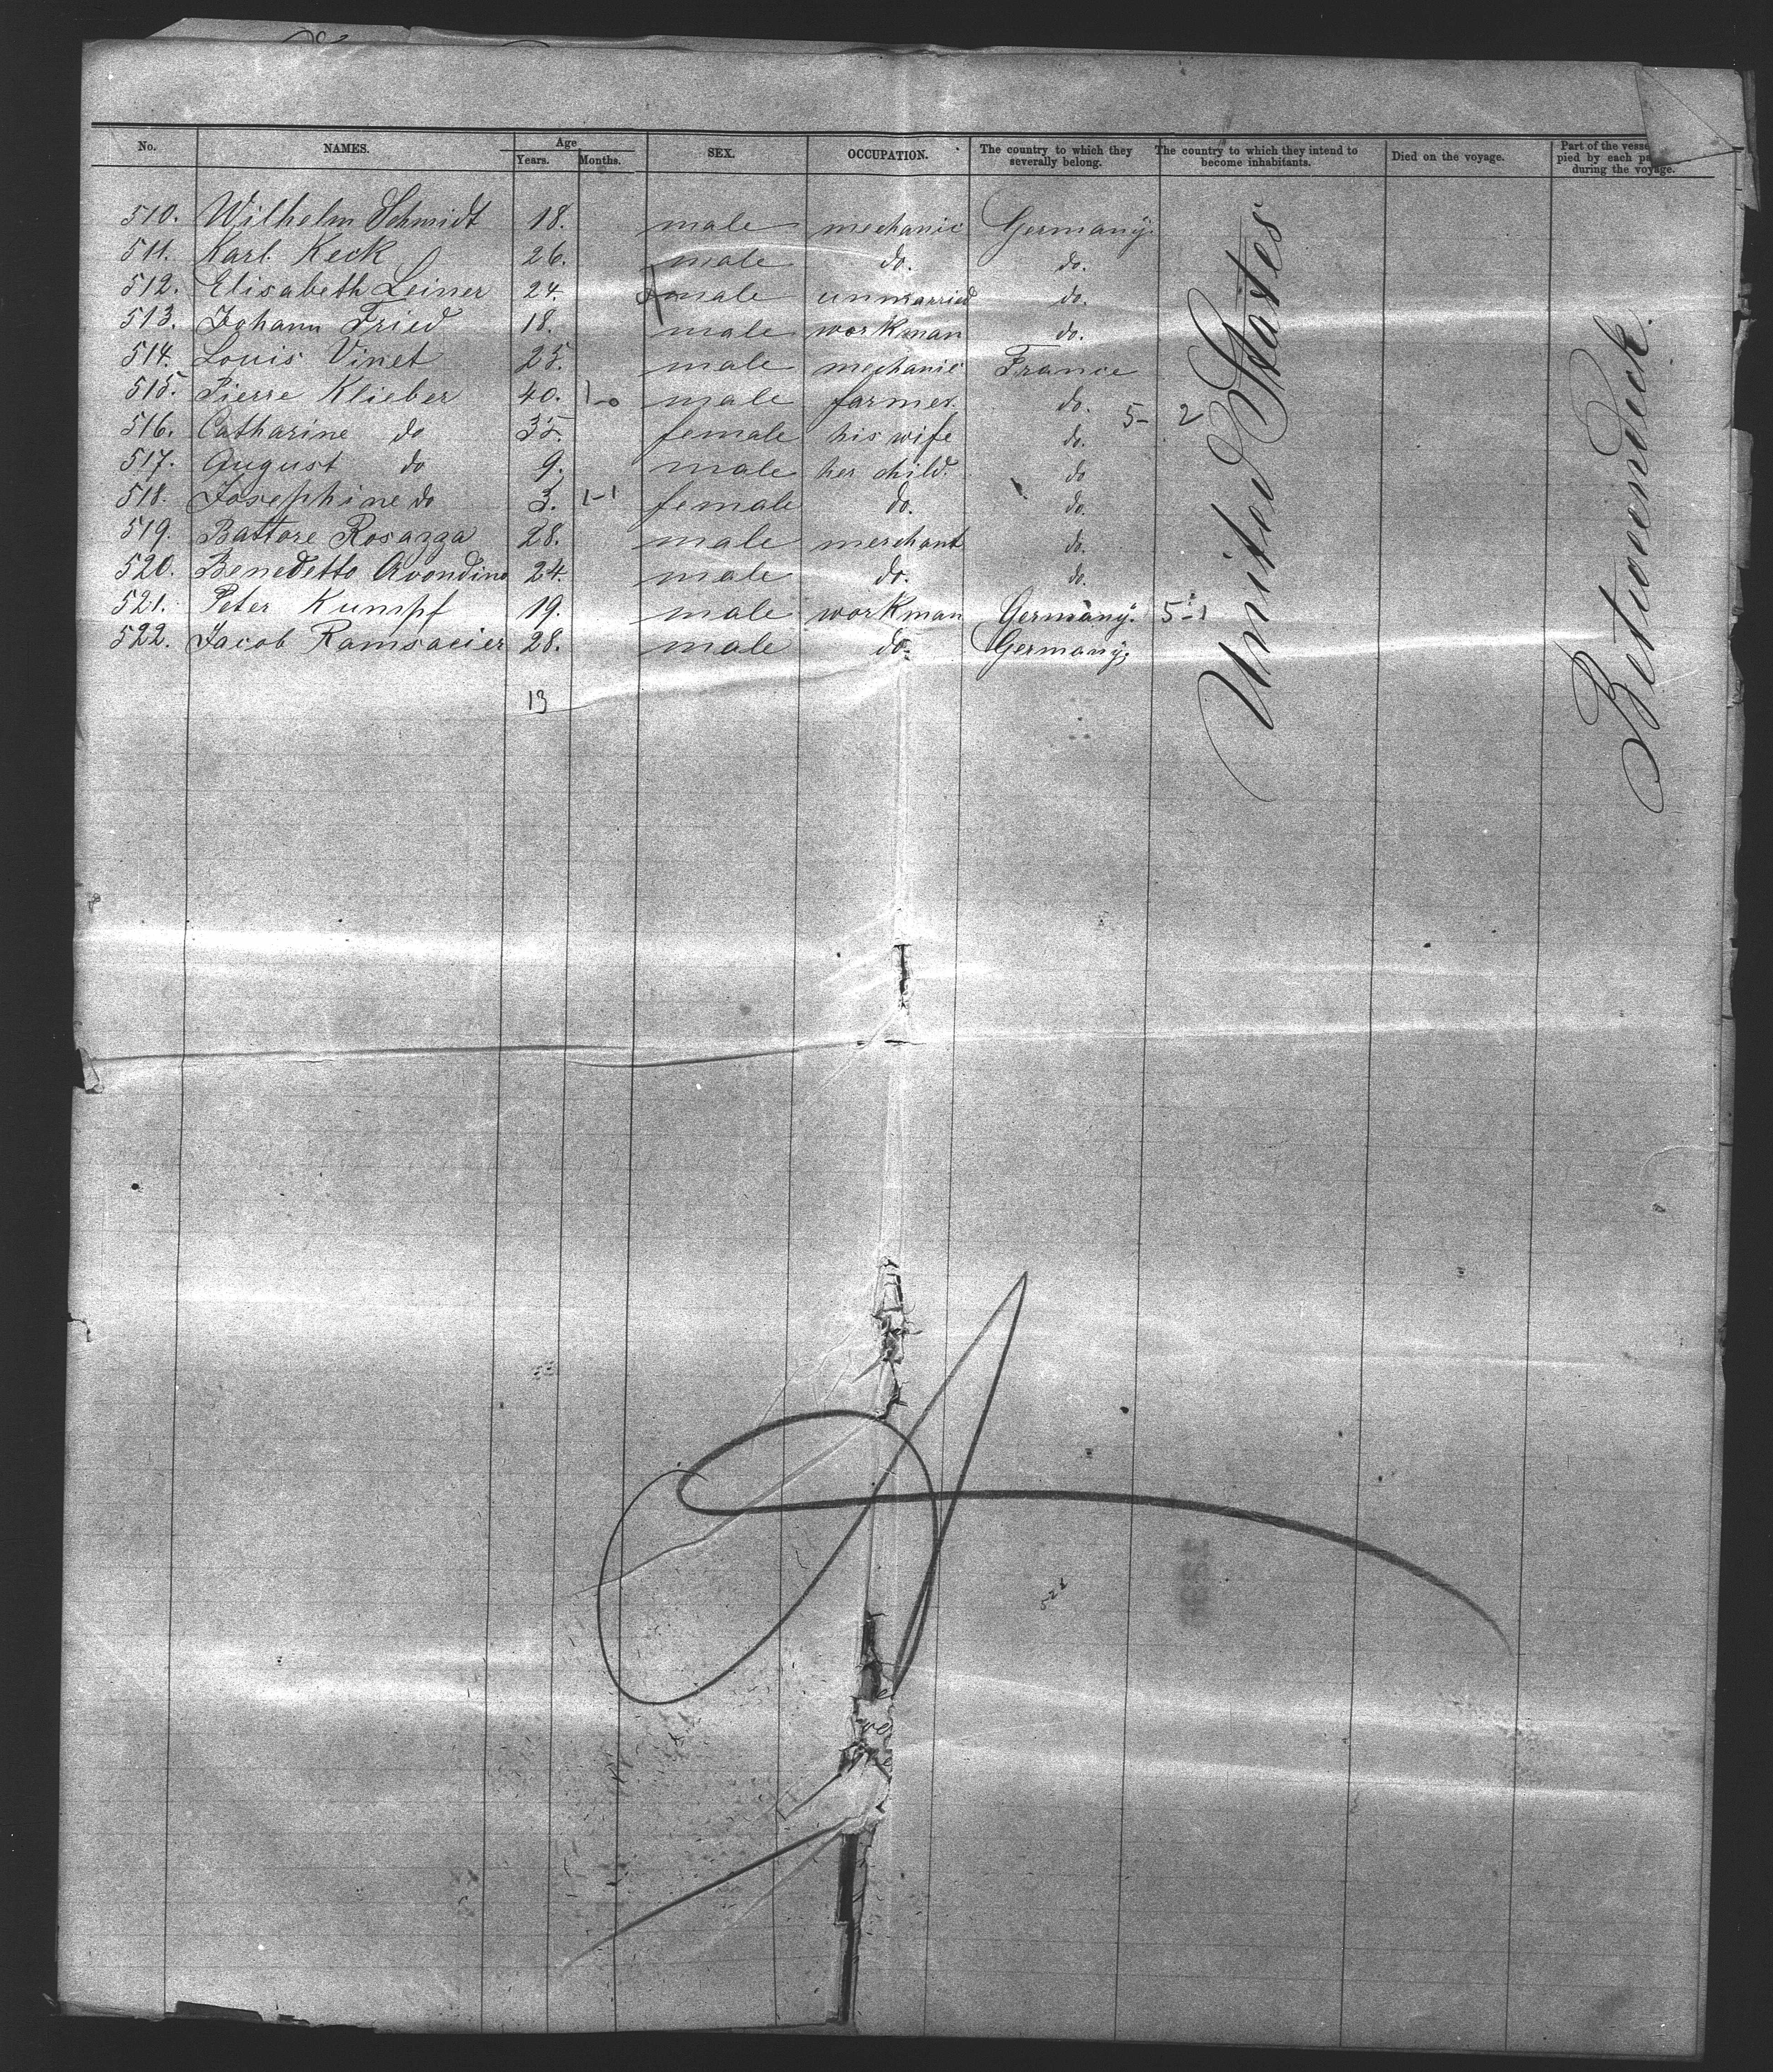 No. NAMES. Age Years. Months. SEX. OCCUPATION. The country to which they severally belong. The country to which they intend to become inhabitants. Died on the voyage. Part of the vesse pied by each pa during the voyage.
510. Wilhelm Schmidt 18. male mechanic Germany.
511. Karl Keck 26. male do. do.
512. Elisabeth Leiner 24. female unmarried do.
513. Johann Fried 18. male workman do.
514. Louis Vinet 25. male mechanic France
515. Pierre Klieber 40. 1-0 male farmer. do. 5- 2
516. Catharine do 35. female his wife do.
517. August do 9. male her child. do
518. Josephine do 3. 1-1 female do. do.
519. Battore Rosazza 28. male merchant do.
520. Benedetto Avondino 24. male do. do.
521. Peter Kumpf 19. male workman Germany. 5-1
522. Jacob Ramsaeier 28. male do. Germany.
13
United States
Betweendeck.
522